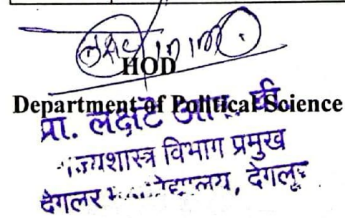 HOD
Department of Political Science
प्रा. लक्षटे आर. 
राज्यशास्त्र विभाग प्रमुख
देगलूर महाविद्यालय, देगलूर